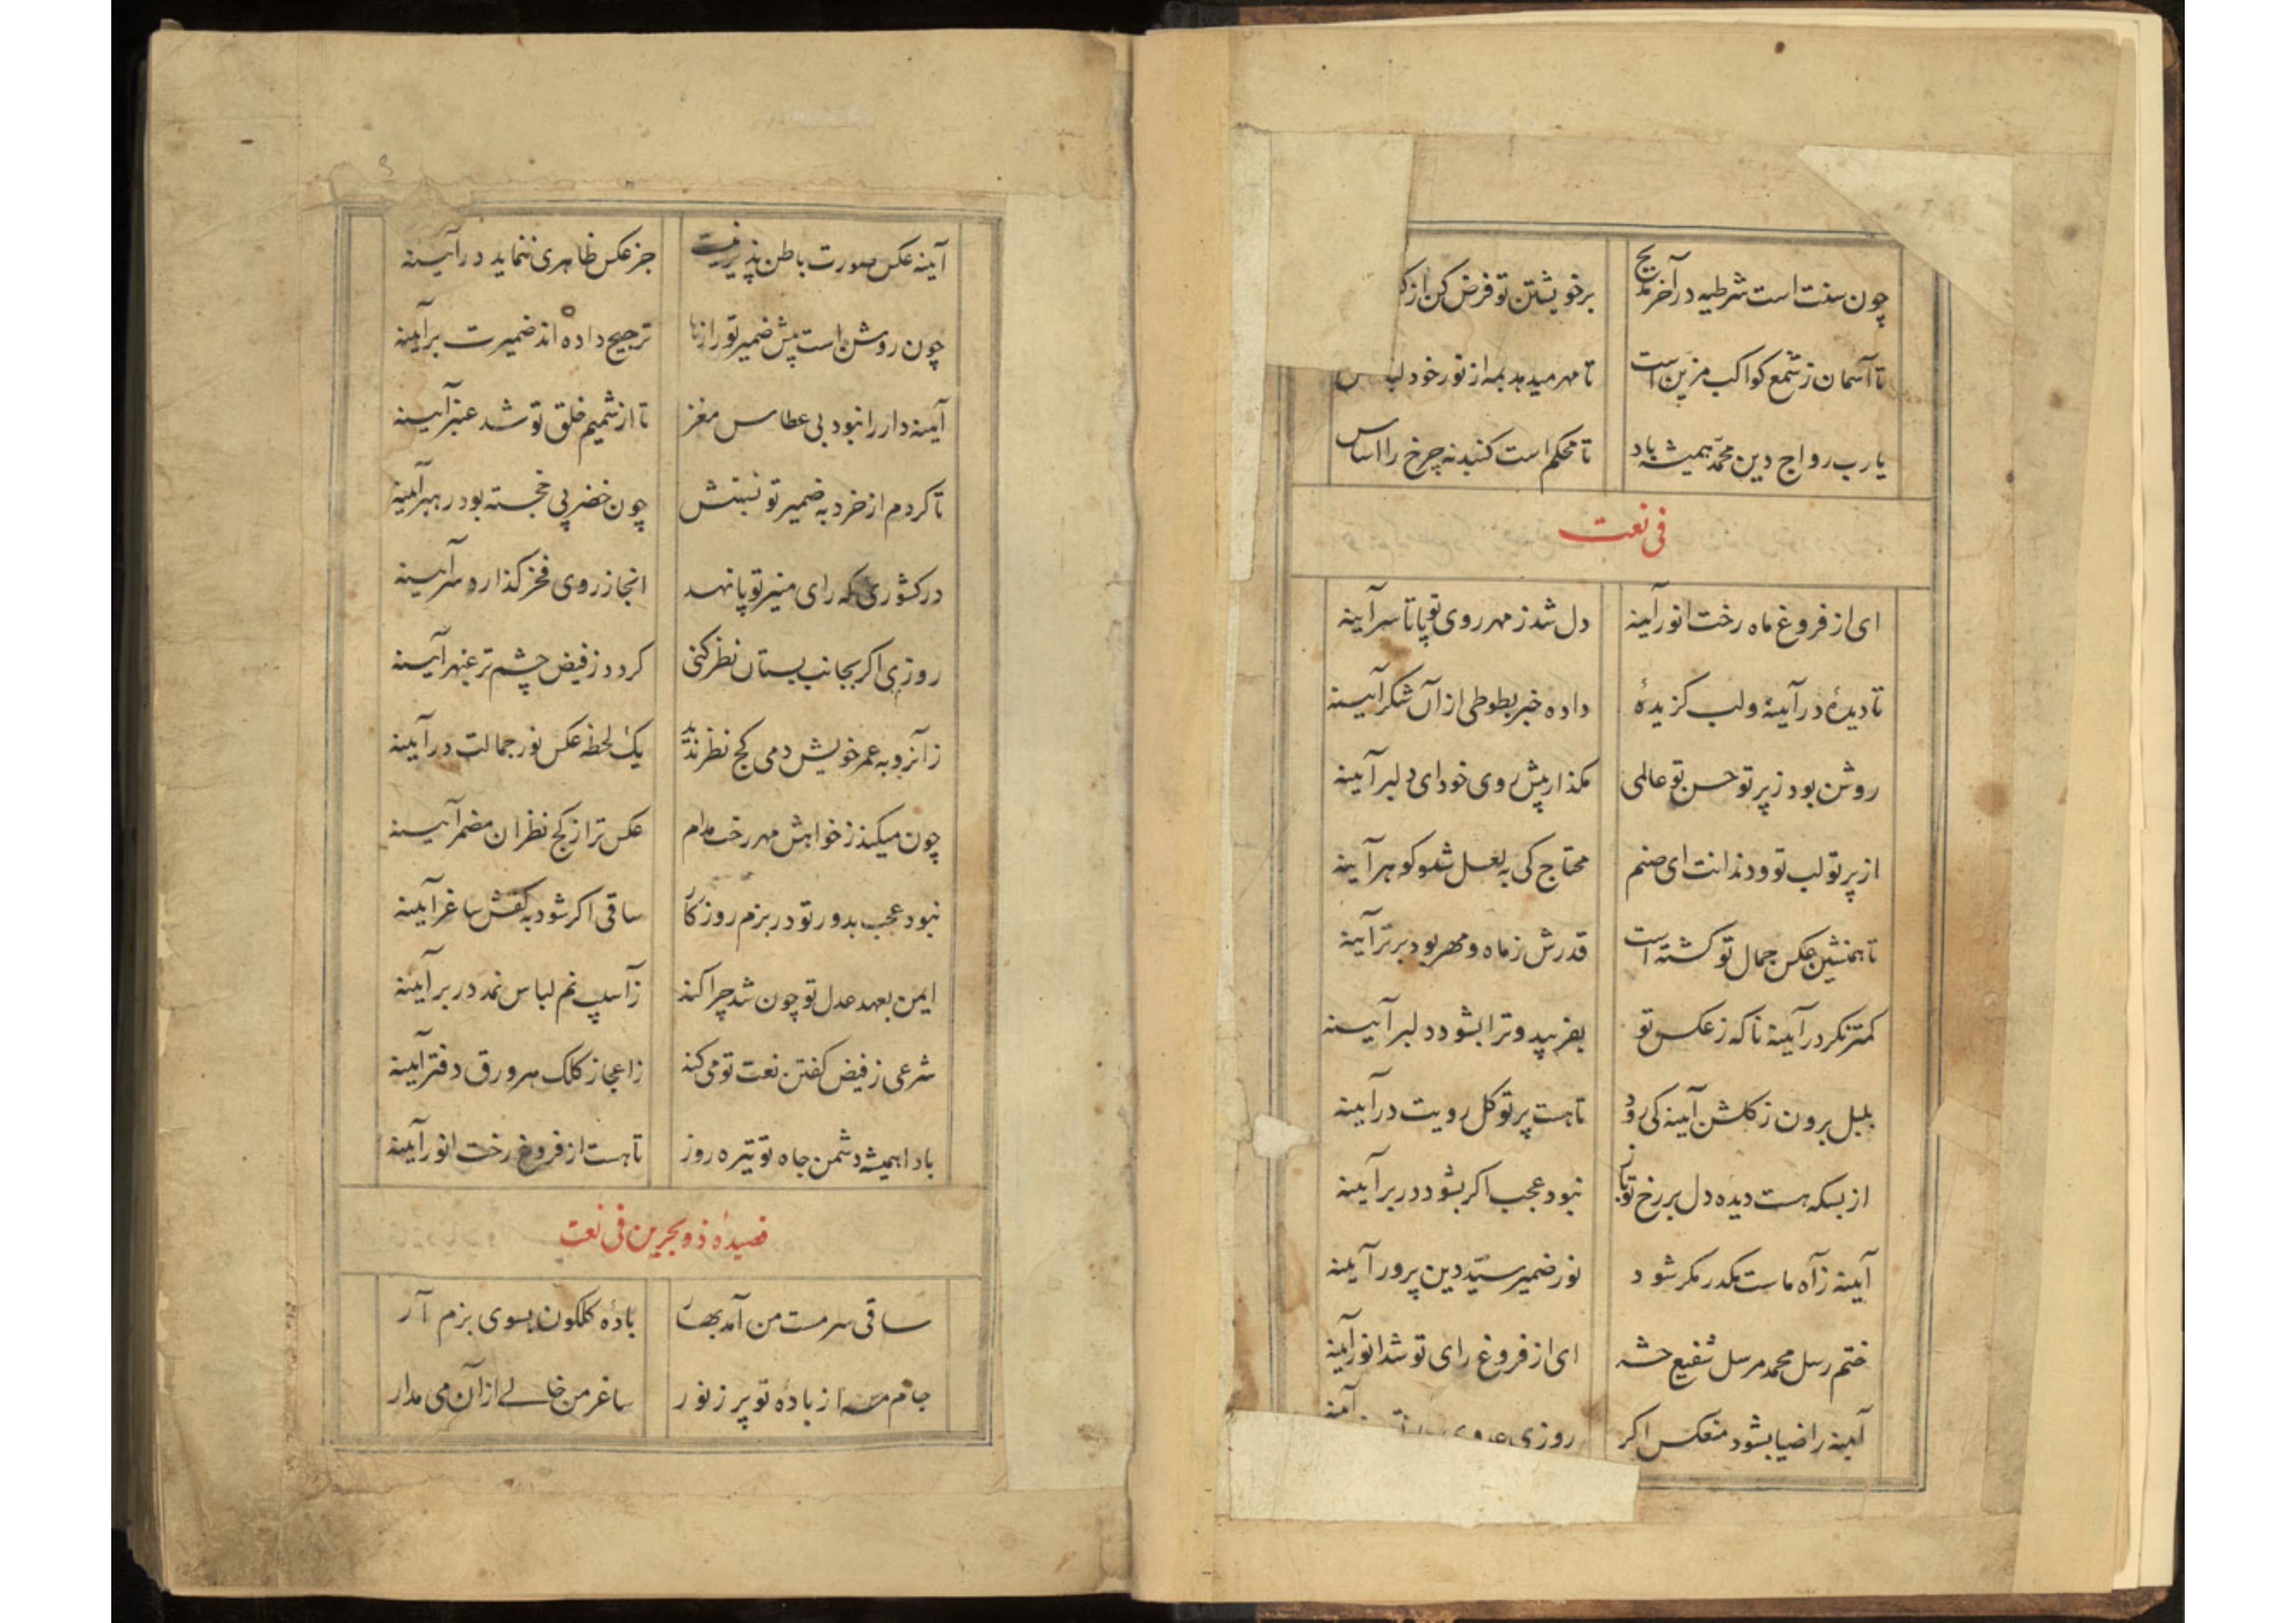 چون سنت است شرطیه در آخر مدیح برخویشتن تو فرض کن از
تا آسمان ز شمع کواکب مزین است تا مهر میدهد بمه از نور خود
یارب رواج دین محمد همیشه باد تا محکم است کنبد نه چرخ را اساس
فی نعت
ای از فروغ ماه رخت انور آینه دل شد ز مهر روی تو پا تا سر آینه
تا دیدهٔ در آینه و لب کزیدهٔ داده خبر بطوطی از آن شکر آیینه
روشن بود ز پرتو حسن تو عالمی مکذار پیش روی خود ای دلبر آینه
از پرتو لب تو و دندانت ای صنم محتاج کی به لعل شد و کوهر آینه
تا همنشین عکس جمال تو کشته است قدرش ز ماه و مهر بود برتر آینه
کمتر نکر در آینه ناکه ز عکس تو بفریبد و ترا بشود دلبر آیینه
بلبل برون ز کلشن آینه کی رود تا هست پرتو کل رویت در آینه
از بسکه هست دیده دل بر رخ تو باز نبود عجب اکر بشود در بر آیینه
آیینه ز آه ماست مکدر مکر شود نور ضمیر سید دین پرور آیینه
ختم رسل محمد مرسل شفیع حشر ای از فروغ رای تو شد انور آینه
آیینه را ضیا بشود منعکس اکر روزی آینه
آینه عکس صورت باطن پذیر نیست جز عکس ظاهری ننماید در آیینه
چون روشن است پیش ضمیر تو رازها ترجیح داده اند ضمیرت بر آیینه
آیینه دار را نبود بی عطاس مغز تا از شمیم خلق تو شد عنبر آیینه
تا کردم از خرد به ضمیر تو نسبتش چون خضر پی خجسته بود رهبر آیینه
در کشوری که رای منیر تو پا نهد انجا ز روی فخر کذارد سر آیینه
روزی اکر بجانب بستان نظر کنی کردد ز فیض چشم تر عبهر آیینه
زآنرو به عمر خویش دمی کج نظر ندید یک لحظه عکس نور جمالت در آیینه
چون میکند ز خواهش مهر رخت مدام عکس ترا ز کج نظران مضمر آیینه
نبود عجب بدور تو در بزم روزکار ساقی اکر شود به کفش ساغر آیینه
ایمن بعهد عدل تو چون شد چرا کند زآسیب نم لباس نمد در بر آیینه
شرعی ز فیض کفتن نعت تو می کند ز اعجاز کلک هر ورق دفتر آیینه
بادا همیشه دشمن جاه تو تیره روز تا هست از فروغ رخت انور آیینه
قصیدهٔ ذو بحرین فی نعت
ساقی سرمست من آمد بهار بادهٔ کلکون بسوی بزم آر
جام مه از باده تو پر ز نور ساغر من خالے از آن می مدار